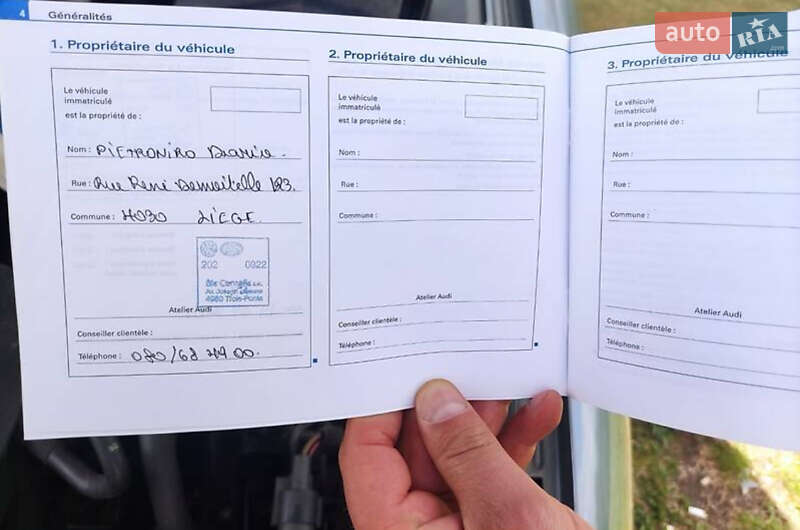 4 Généralités
auto RIA .com
1. Propriétaire du véhicule
Le véhicule
immatriculé
est la propriété de :
Nom : PIETRONIRO Dario.
Rue : Rue René Demoitelle 123.
Commune : 4030 LIÈGE.
202 0922
Ets Cornélis s.a.
Av. Joseph
4980 Trois-Ponts
Atelier Audi
Conseiller clientèle :
Téléphone : 080/68 49 00.
2. Propriétaire du véhicule
Le véhicule
immatriculé
est la propriété de :
Nom :
Rue :
Commune :
Atelier Audi
Conseiller clientèle :
Téléphone :
3. Propriétaire du véhicule
Le véhicule
immatriculé
est la propriété de :
Nom :
Rue :
Commune :
Atelier Audi
Conseiller clientèle :
Téléphone :